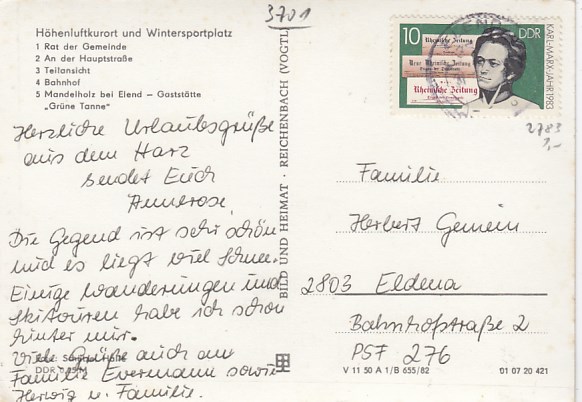 3701
Höhenluftkurort und Wintersportplatz
1 Rat der Gemeinde
2 An der Hauptstraße
3 Teilansicht
4 Bahnhof
5 Mandelholz bei Elend – Gaststätte
„Grüne Tanne"
Herzliche Urlaubsgrüße
aus dem Harz
sendet Euch
Annerose.
Die Gegend ist sehr schön
und es liegt viel Schnee.
Einige Wanderungen und
Skitouren habe ich schon
hinter mir.
Viele Grüße auch an
Familie Evermann sowie
Herwig u. Familie.
DDR
BILD UND HEIMAT · REICHENBACH (VOGTL
10
DDR
Rheinische Zeitung
Neue Rheinische Zeitung
Rheinische Zeitung
KARL-MARX-JAHR 1983
2783
1,-
Familie
Herbert Gemein
2803 Eldena
Bahnhofstraße 2
PSF 276
V 11 50 A 1/B 655/82
01 07 20 421